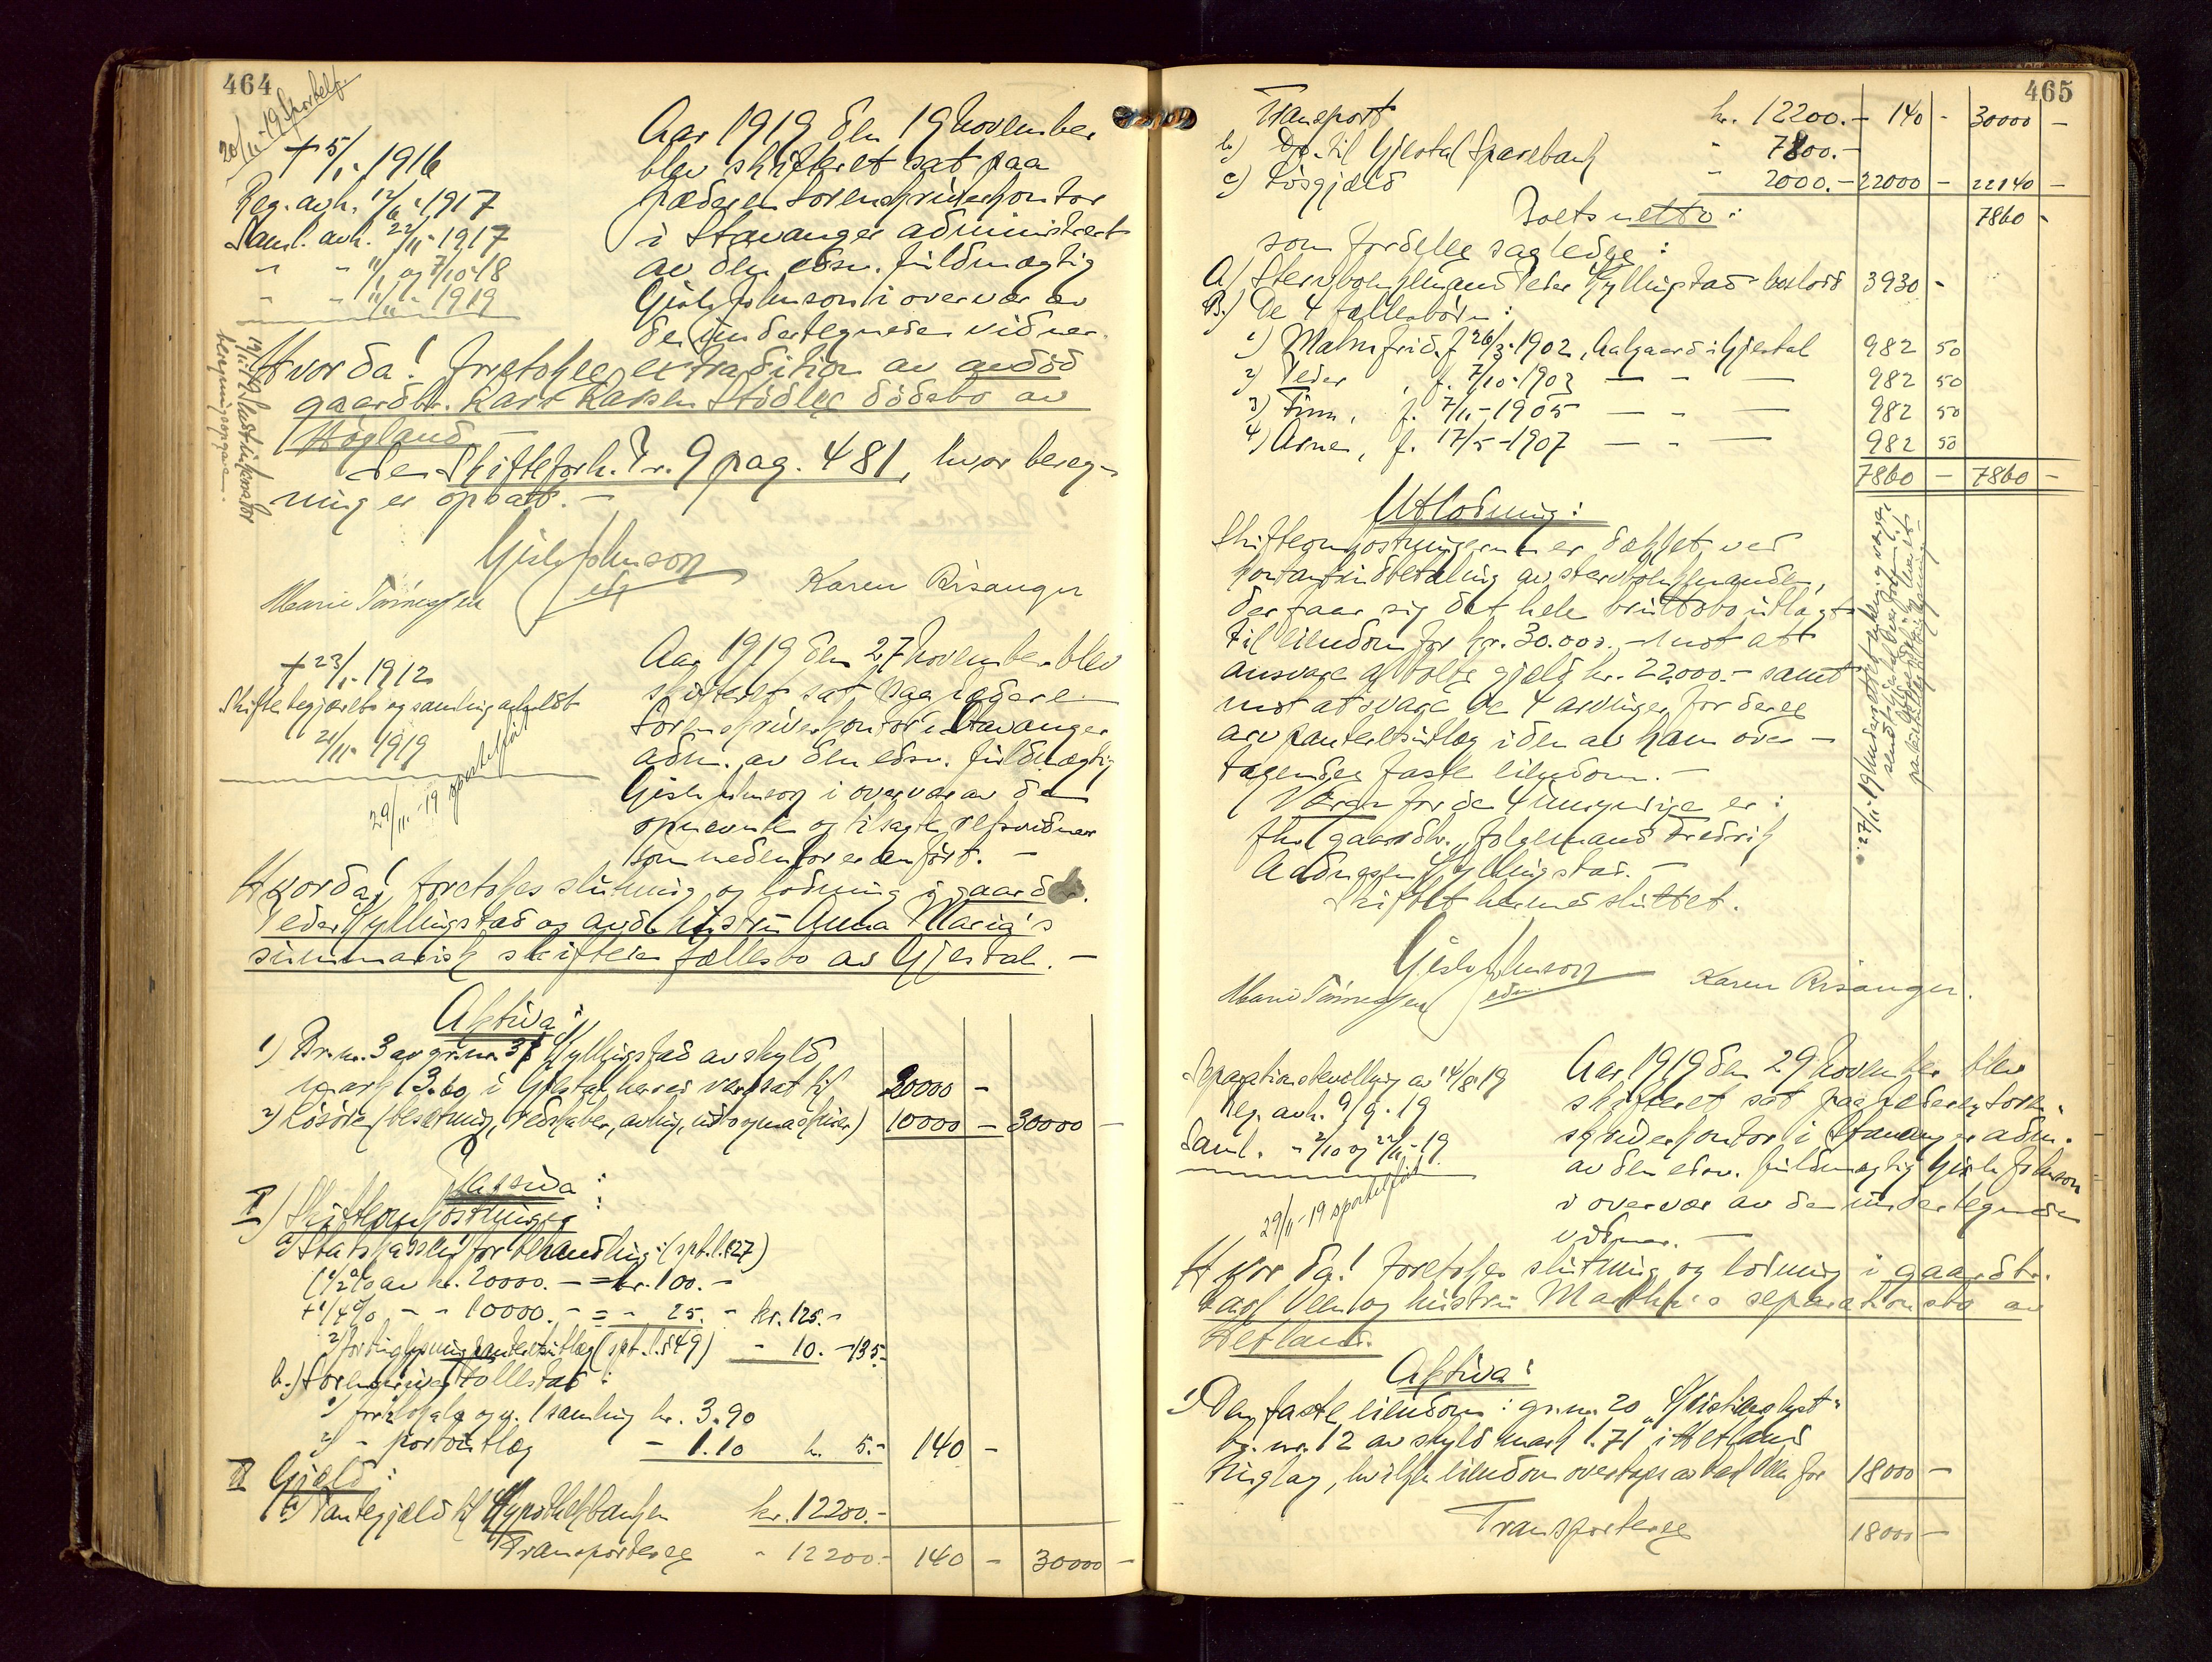 464
20/11-19 Sportelf.
+ 5/1-1916
Reg. avh. 12/6-1917
Saml. avh. 22/11-1917
" " 11/1 og 7/10-18
" " 11/11-1919
Aar 1919 den 19 november
blev skifteret sat paa
Jæderen sorenskriverkontor
i Stavanger administrert
av den edsv. fuldmægtig
Gisle Johnson i overvær av
de undertegnede vidner.
Hvorda! foretokes extradition av avdöd
gaardbr. Lars Larsen Stödles dödsbo av
Högland
Se Skifteforh. Pr. 9 pag. 481, hvor bereg-
ning er opsatt. -
Gisle Johnson
efg
Marie Tönnessen
Karen Risanger
+ 23/1-1912
Skifte begjæret og samling avholdt
21/11-1919
29/11-19 sportelfört
Aar 1919 den 27 november blev
skifteret sat paa Jæderen
sorenskriverkontor i Stavanger
adm. av den edsv. fuldmægtig
Gisle Johnson i overvær av de
opnævnte og tilsagte retsvidner
som nedenfor er anfört. -
Hvorda! foretokes slutning og lodning i gaardbr.
Peder Kyllingstad og avd. hustru Anna Maria's
summarisk skiftede fællesbo av Gjestal. -
Aktiva:
1) Br.nr. 3 av gr.nr. 37 Kyllingstad av skyld
mark 3.60 i Gjestal herred verdsat til 20000 -
2) Lösöre (besætning, redskaber, avling, indbo og maskiner) 10000 - 30000 -
Passiva:
I) Skifteomkostninger:
a) Statskassen for behandling: (sptl. § 27)
1) 1/2 % av kr. 20000. - = kr. 100. -
+ 1/4 % - - 10000. - = - 25. - kr. 125. -
2) for tinglysning panteutlæg (spt. l. § 49) - 10. - 135.-
b.) Sorenskriver Tollestad:
1) for lokale og v. 1 samling kr. 3.90
2) - portoutlæg - 1.10 kr. 5.- 140 -
II Gjæld:
a) Pantegjæld til Hypothekbanken kr. 12200.-
Transporteres " 12200.- 140 - 30000 -
465
Transport kr. 12200.- 140 - 30000 -
b) Do. til Gjestal Sparebank " 7800.-
c) Lösgjæld " 2000.- 22000 - 22140 -
Boets netto: 7860 -
som fordeles saaledes:
A) Stervboenkemand Peder Kyllingstad boslodd 3930 -
B.) De 4 fællesbörn:
1) Malmfrid, f. 26/3-1902, Aalgaard i Gjestal 982 50
2) Peder, f. 7/10-1903 — - — 982 50
3) Finn, f. 7/11-1905 — - — 982 50
4) Arne, f. 17/5-1907 — - — 982 50
7860 - 7860 -
Utlodning:
Skifteomkostningerne er dækket ved
kontant indbetaling av stervboenkemanden,
der faar sig det hele bruttobo utlagt
til eiendom for kr. 30.000. - mot att
ansvare al boets gjeld kr. 22.000.- samt
mot at svare de 4 arvinger for deres
arv panteretsutlæg i den av ham over-
tagendes faste eiendom. -
Værge for de 4 umyndige er:
fhv. gaardbr., folgemand Fredrik
Aadnesen Kyllingstad. -
Skiftet hermed sluttet.
Gisle Johnson
edsv.
Marie Tönnessen
Karen Risanger.
Separationsbevilling av 14/8-19
Reg. avh. 9/9-19
Saml. - 2/10 og 22/11-19
29/11-19 sportelfört
Aar 1919 den 29 november blev
skifteret sat paa Jæderen soren-
skriverkontor i Stavanger adm.
av den edsv. fuldmægtig Gisle Johnson
i overvær av de undertegnede
vidner. -
Hvor da! foretokes slutning og lodning i gaardbr.
og hustru Martha's separationsbo av
Hetland.
Aktiva:
1) Den faste eiendom: gr.nr. 20 "Kristianslyst"
br. nr. 12 av skyld mark 1.71 i Hetland
tinglag, hvilken eiendom overtages av for 18000 -
Transporteres 18000 -